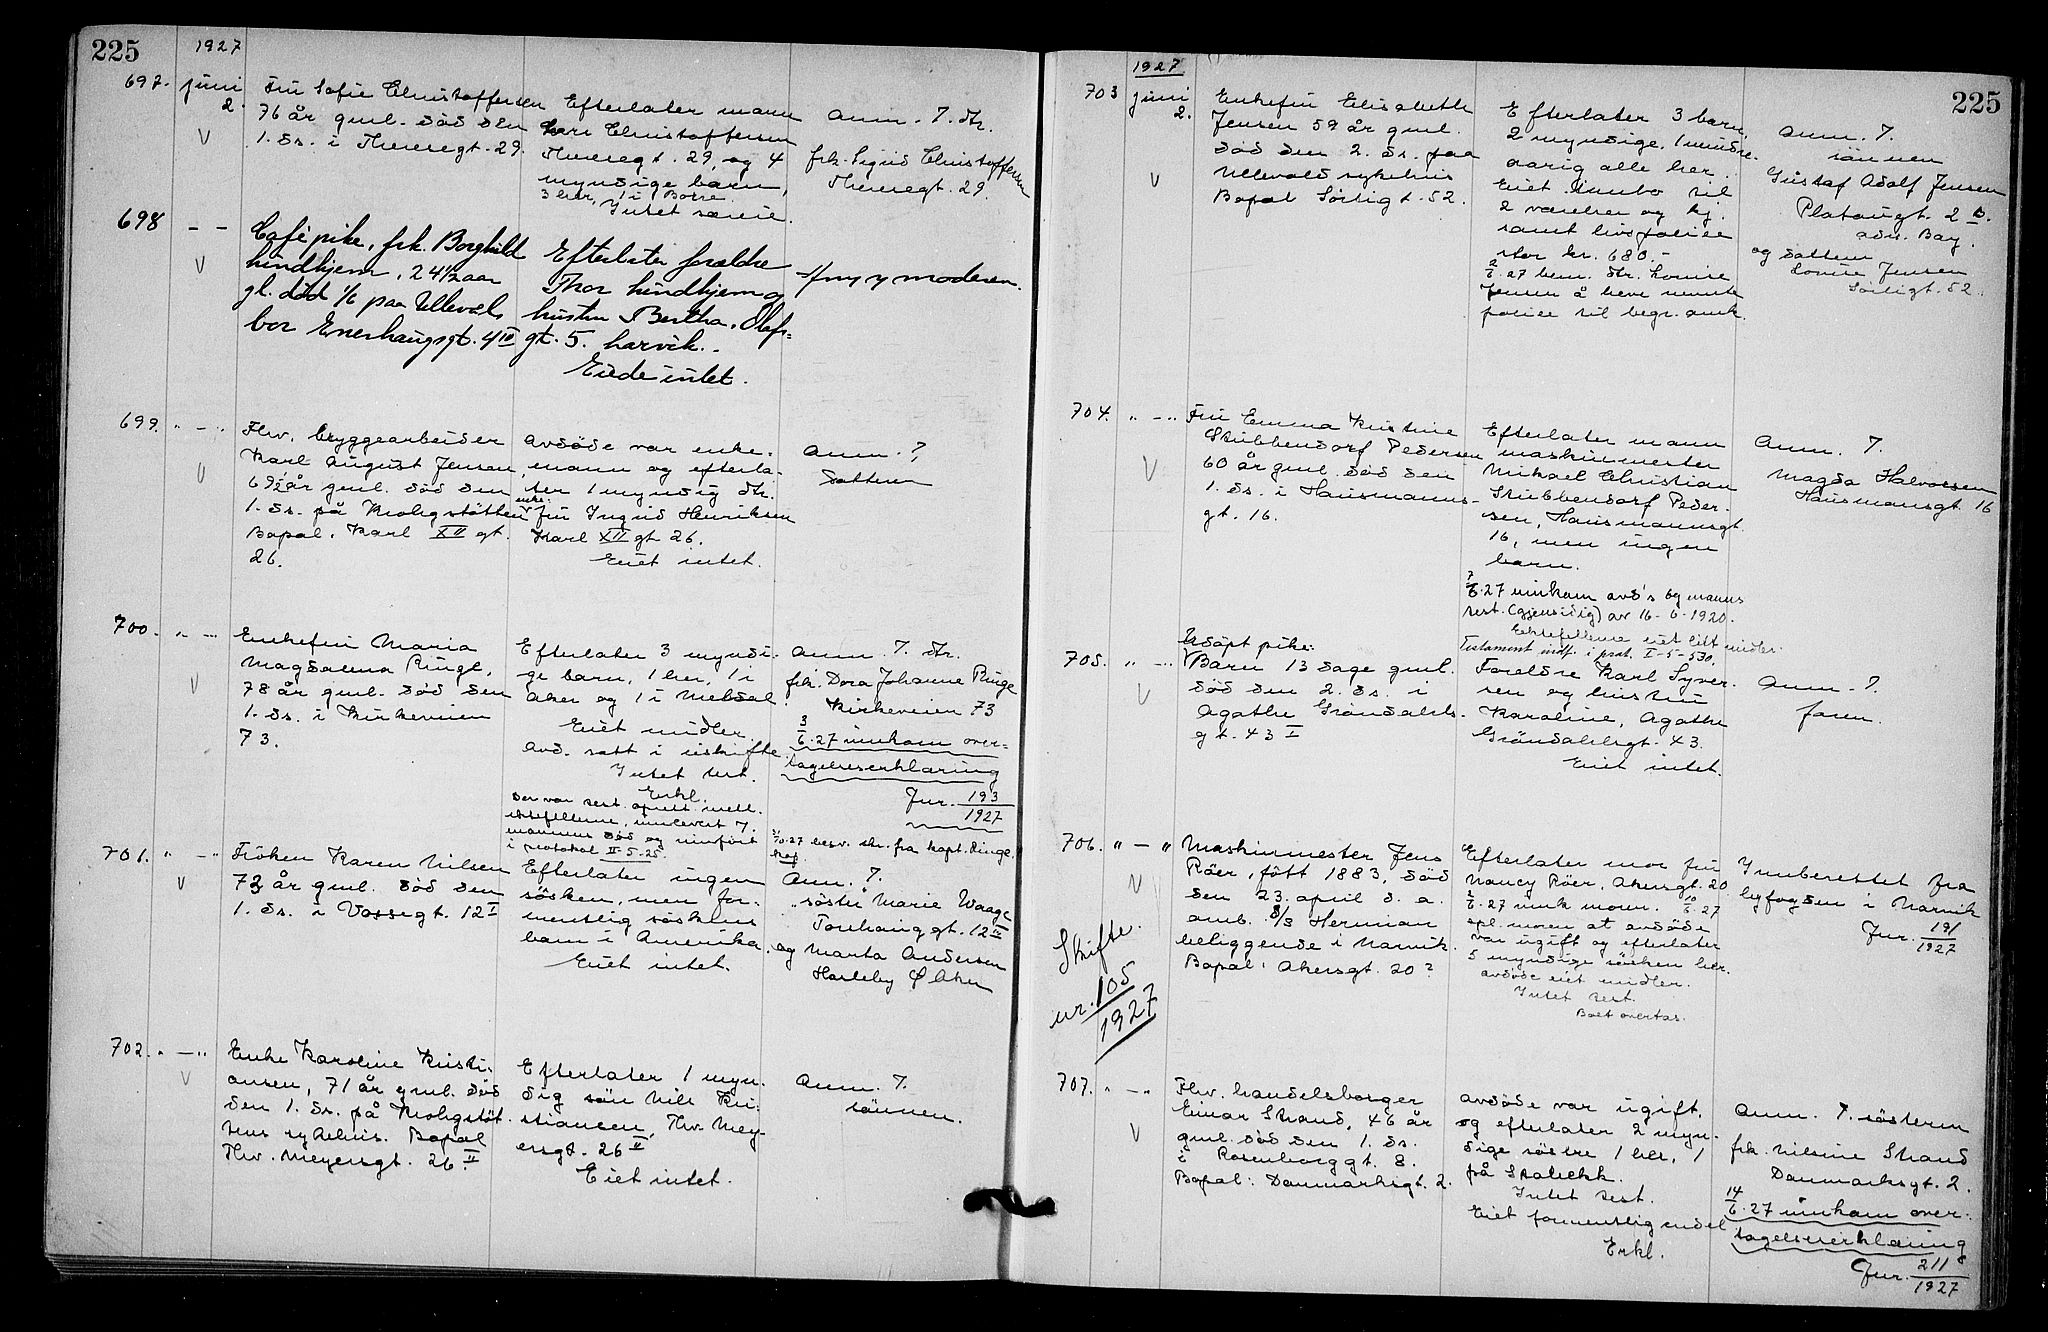 225
1927
697. juni 2.
Fru Sofie Christoffersen
76 år gml. död den
1. ds. i Theresegt. 29.
Efterlater mann
Christoffersen
Theresegt. 29, og 4
myndige barn,
3 her, 1 i Borre.
Intet særeie.
Anm. 7. dtr.
frk. Sigrid Christoffersen
Theresegt. 29.
698 - -
Cafépike, frk. Borghild
Lindhjem, 24 1/2 aar
gl. död 1/6 paa Ullevål
bor Enerhaugsgt. 4 IV
Efterlater forældre
Thor Lindhjem og
hustru Bertha, Olafs-
gt. 5. Larvik.
Eiede intet.
Anm. 7 moderen.
699. " - "
Fhv. bryggearbeider
Karl August Jensen,
69 1/2 år gml. död den
1. ds. på Krohgstötten
Bopal. Karl XII gt.
26.
Avdöde var enke-
mann og efterla-
ter 1 myndig dtr.
enke-
fru Ingrid Henriksen
Karl XII gt 26.
Eiet intet.
Anm. 7.
Datteren
700. " - "
Enkefru Maria
Magdalena Ringe,
78 år gml. död den
1. ds. i Kirkeveien
73.
Efterlater 3 myndi-
ge barn, 1 her, 1 i
Aker og 1 i Meldal
Eiet midler.
Avd. satt i uskifte.
Intet test.
Erkl.
Der var test. oprett. mell.
ektefellerne, innlevert v.
mannens död og innfört
i protokol II-5-25.
Anm. 7. dtr.
frk. Dora Johanne Ringe
Kirkeveien 73
3/6.27 innkom over-
tagelseserklæring
Jnr. 193/1927
/10.27 besv. skr. fra kapt. Ringe.
701. " - "
Fröken Karen Nilsen
73 år gml. död den
1. ds. i Vossegt. 12 I
Efterlater ingen
sösken, men for-
mentlig söskens
barn i Amerika.
Eiet intet.
Anm. 7.
söster Marie Waage
Torshauggt. 12 IV
og Marta Andersen
Harleby Ø Aker
702. " - "
Enke Karoline Kristi-
ansen, 71 år gml. död
den 1. ds. på Krohgstöt-
tens sykehus. Bopal
Thv. Meyersgt. 26 II
Efterlater 1 myn-
dig sön Nils Kri-
stiansen, Thv. Mey-
ersgt. 26 II
Eiet intet.
Anm. 7.
sönnen.
225
1927
703 juni 2.
Enkefru Elisabeth
Jensen 59 år gml.
död den 2. ds. paa
Ullevold sykehus
Bopal Sörligt. 52.
Efterlater 3 barn,
2 myndige, 1 mindre-
aarig alle her.
Eiet innbo til
2 værelser og kj.
samt livspolice
stor kr. 680.-
2/6.27 bem. dtr. Louise
Jensen å heve nevnte
police til begr. omk.
Anm. 7.
sönnen
Gustaf Adolf Jensen
Platougt. 2 B.
adr. Bay.
og datteren
Louise Jensen
Sörligt. 52.
704. " - "
Fru Emma Kristine
Stubbendorf Pedersen
60 år gml. död den
1. ds. i Hausmanns-
gt. 16.
Efterlater mann
maskinmester
Mikael Christian
Stubbendorf Peder-
sen, Hausmannsgt.
16, men ingen
barn.
7/6.27 innkom avd's og manns
test. (gjensidig) av 16-6-1920.
Ektefellerne eiet litt midler.
Testament indf. i prot. I-5-530.
Anm. 7.
Magda Halvorsen
Hausmansgt. 16
705. " - "
Udöpt pike:
Barn 13 dage gml.
död den 2. ds. i
Agathe Gröndahls-
gt. 43 I
Foreldre Karl Syver-
sen og hustru
Karoline, Agathe
Gröndahlsgt. 43.
Eiet intet.
Anm. 7.
faren.
706. " - "
Skifte.
nr. 105/1927
Maskinmester Jens
Röer, född 1883, död
den 23. april d. a.
omb. S/S Herman
beliggende i Narvik.
Bopal: Akersgt. 20?
Efterlater mor fru
Nancy Röer, Akersgt. 20
2/6.27 innk moren. 10/6.27
opl. moren at avdöde
var ugift og efterlater
5 myndige sösken her.
Avdöde eiet midler.
Intet test.
Boet overtas.
Innberettet fra
byfogden i Narvik
Jnr. 191/1927
707. " - "
Fhv. handelsborger
Einar Strand, 46 år
gml. död den 1. ds.
i Rosenborggt. 8.
Bopal: Danmarksgt. 2.
Avdöde var ugift,
og efterlater 2 myn-
dige söstre 1 her, 1
på Stabekk.
Intet test.
Eiet formentlig endel
Erkl.
Anm. 7. sösteren
frk. Nilsine Strand
Danmarksgt. 2.
14/6.27 innkom over-
tagelseserklæring
Jnr. 211/1927